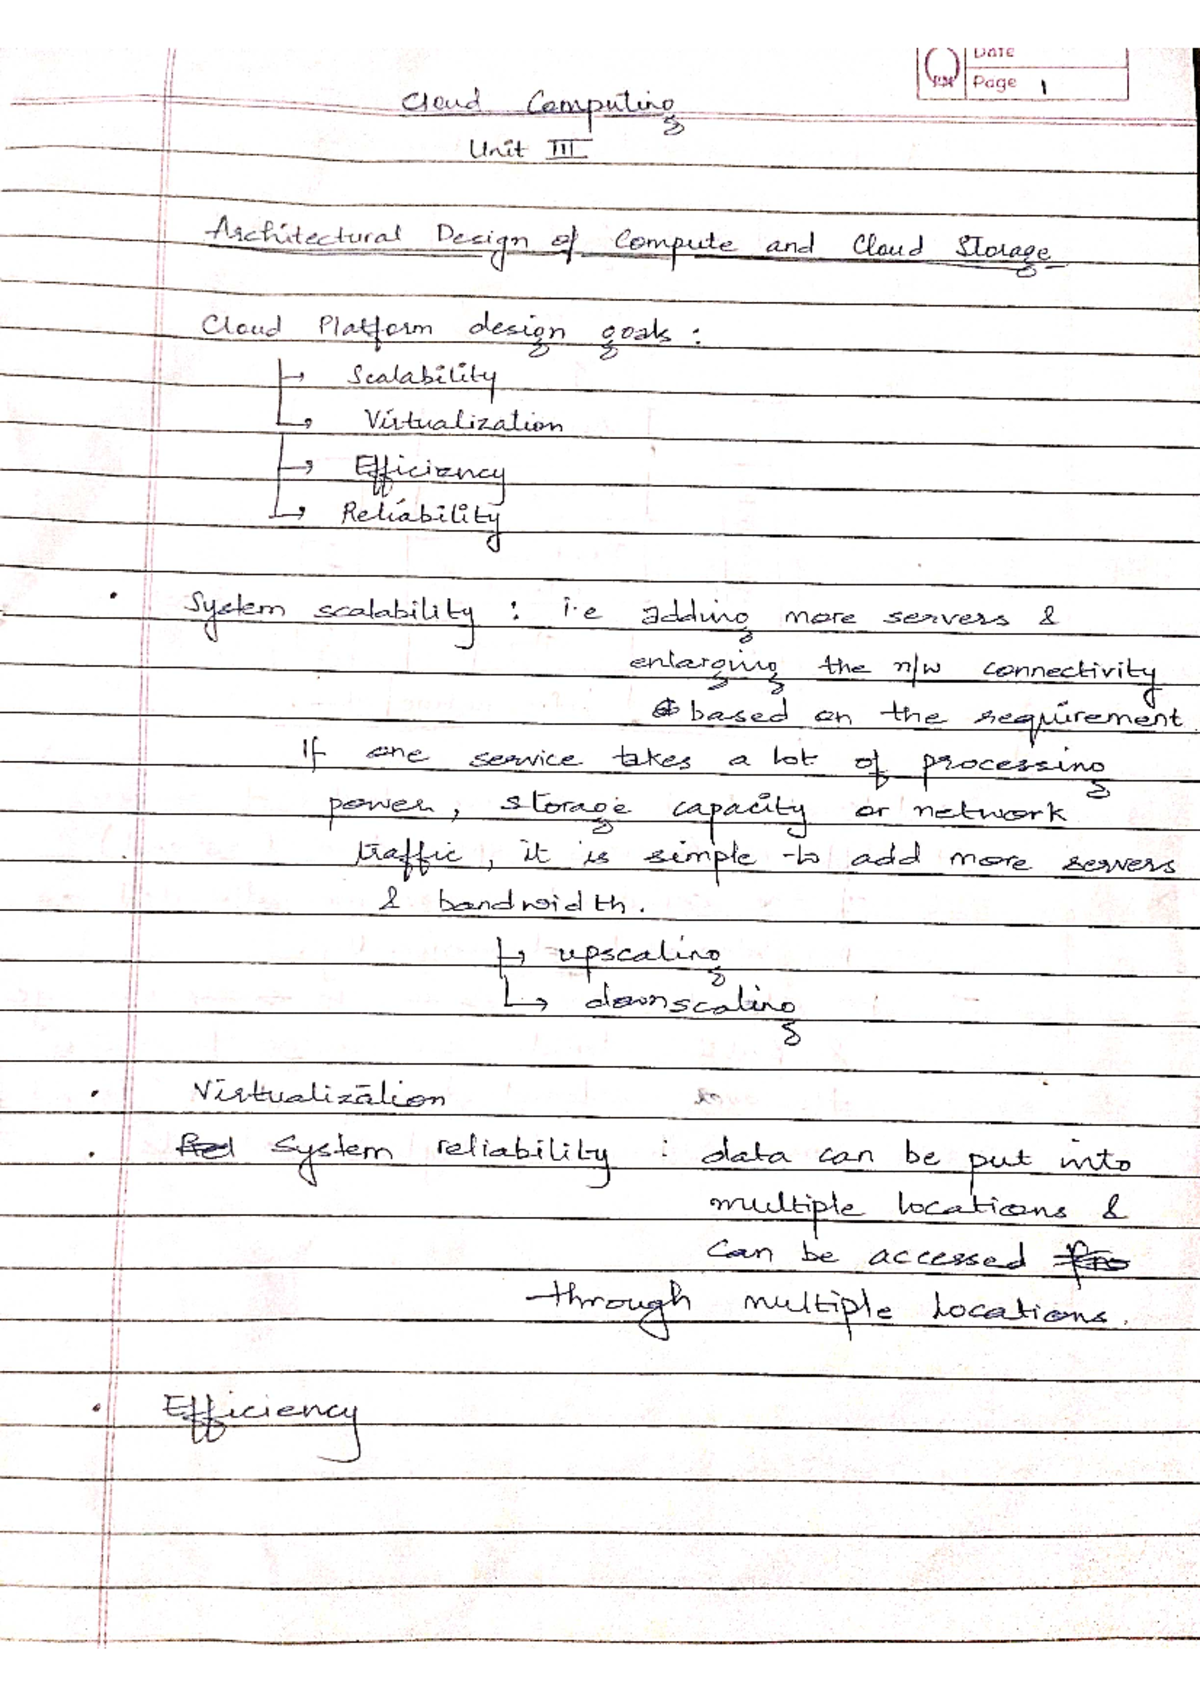 Date
Page 1
Cloud Computing
Unit III
Architectural Design of Compute and Cloud Storage
Cloud Platform design goals :
→ Scalability
→ Virtualization
→ Efficiency
→ Reliability
• System scalability : i.e adding more servers &
enlarging the n/w connectivity
based on the requirement
If one service takes a lot of processing
power, storage capacity or network
traffic, it is simple to add more servers
& bandwidth.
→ upscaling
→ downscaling
• Virtualization
• System reliability : data can be put into
multiple locations &
can be accessed
through multiple locations.
• Efficiency